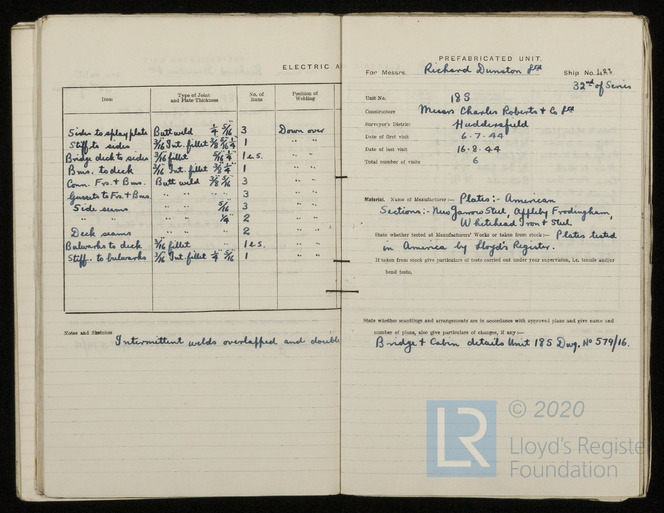 ELECTRIC A
Item
Type of Joint and Plate Thickness
No. of Runs
Position of Welding
Sides to splay plate Butt weld 1/4" 5/16" 3 Down over
Stiff. to sides 3/16 Int. fillet 3/8 5/16 1/4 1 " "
Bridge deck to sides 3/16 fillet 5/16 1/4 1 e.s. " "
Bms. to deck 3/16 Int. fillet 1/4 1 " "
Conn. Frs. & Bms. Butt weld 3/8 5/16 3 " "
Gussets to Frs. & Bms. " " " " 3 " "
Side seams " " 5/16 3 " "
" " " " 1/4 2 " "
Deck seams " " 2 " "
Bulwarks to deck 3/16 fillet 1 e.s. " "
Stiff. to bulwarks 3/16 Int. fillet 1/4 3/16 1 " "
Notes and Sketches
Intermittent welds overlapped and double
PREFABRICATED UNIT.
For Messrs. Richard Dunston Ltd Ship No. 423
32nd of Series
Unit No. 18S
Constructors Messrs Charles Roberts & Co Ltd
Surveyor's District Huddersfield
Date of first visit 6.7.44
Date of last visit 16.8.44
Total number of visits 6
Material. Name of Manufacturer :— Plates:- American
Sections:- New Jarrow Steel, Appleby Frodingham,
Whitehead Iron & Steel
State whether tested at Manufacturers' Works or taken from stock :— Plates tested
in America by Lloyd's Register.
If taken from stock give particulars of tests carried out under your supervision, i.e. tensile and/or
bend tests.
State whether scantlings and arrangements are in accordance with approved plans and give name and
number of plans, also give particulars of changes, if any :—
Bridge & Cabin details Unit 18S Dwg. No 579/16.
LR
© 2020
Lloyd's Register
Foundation